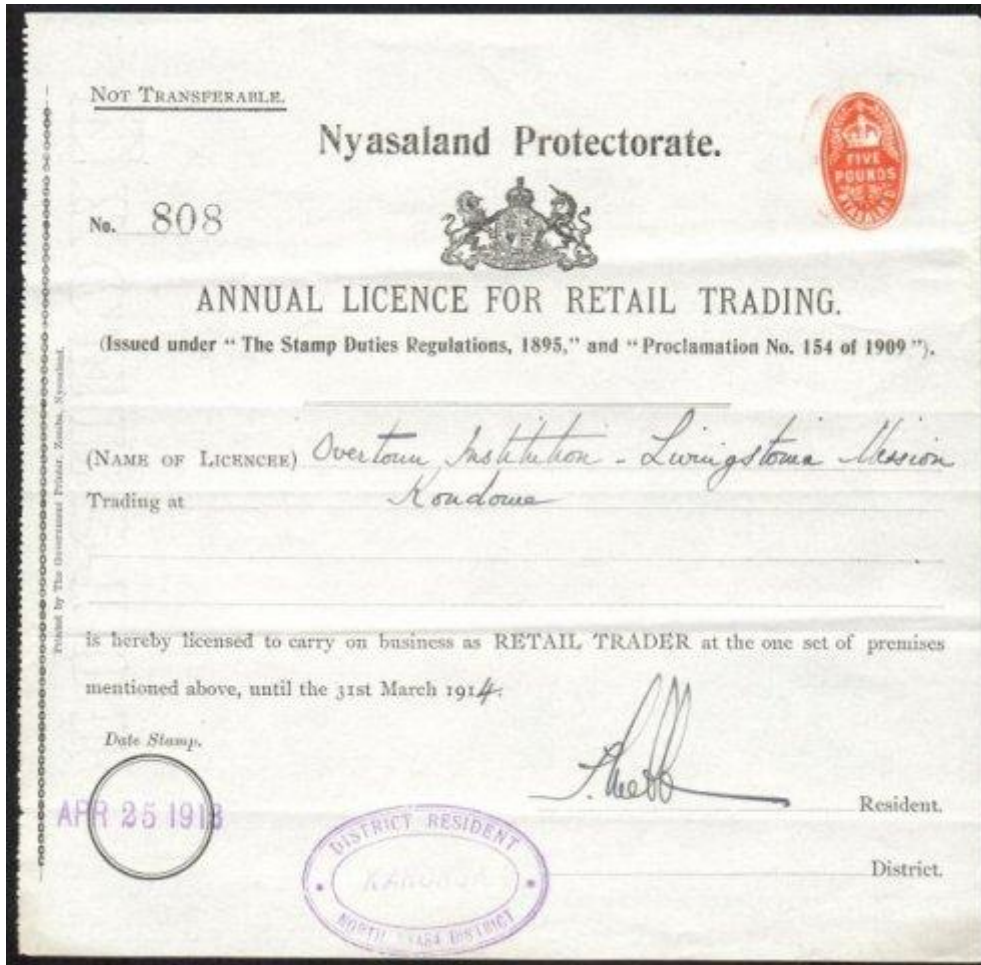 NOT TRANSFERABLE.
Nyasaland Protectorate.
FIVE
POUNDS
No. 808
ANNUAL LICENCE FOR RETAIL TRADING.
(Issued under "The Stamp Duties Regulations, 1895," and "Proclamation No. 154 of 1909").
(NAME OF LICENCEE) Overtoun Institution - Livingstonia Mission
Trading at Kondowe
is hereby licensed to carry on business as RETAIL TRADER at the one set of premises
mentioned above, until the 31st March 1914.
Date Stamp.
APR 25 1913
Resident.
DISTRICT RESIDENT
KARONGA
NORTH NYASA DISTRICT
District.
Printed by The Government Printer, Zomba, Nyasaland.